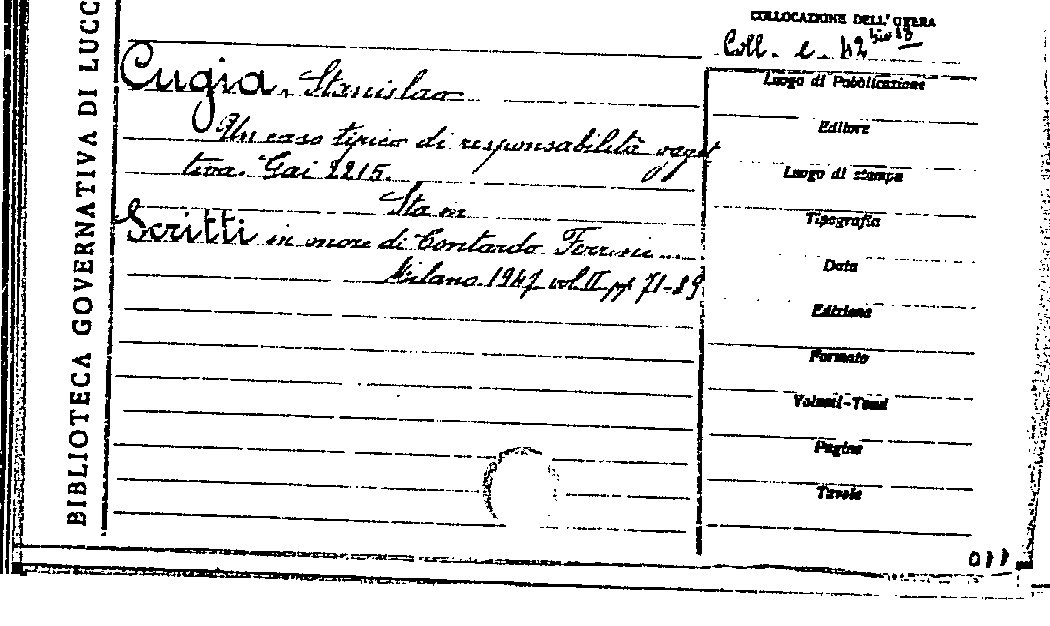 BIBLIOTECA GOVERNATIVA DI LUCC
COLLOCAZIONE DELL'OPERA
Coll. e. 42
Cugia, Stanislao
Un caso tipico di responsabilità ogget
tiva. Gai 2215.
Sta in
Scritti in onore di Contardo Ferrini...
Milano 1947 vol. II pp 71-89
Luogo di Pubblicazione
Editore
Luogo di stampa
Tipografia
Data
Edizione
Formato
Volumi-Tomi
Pagine
Tavole